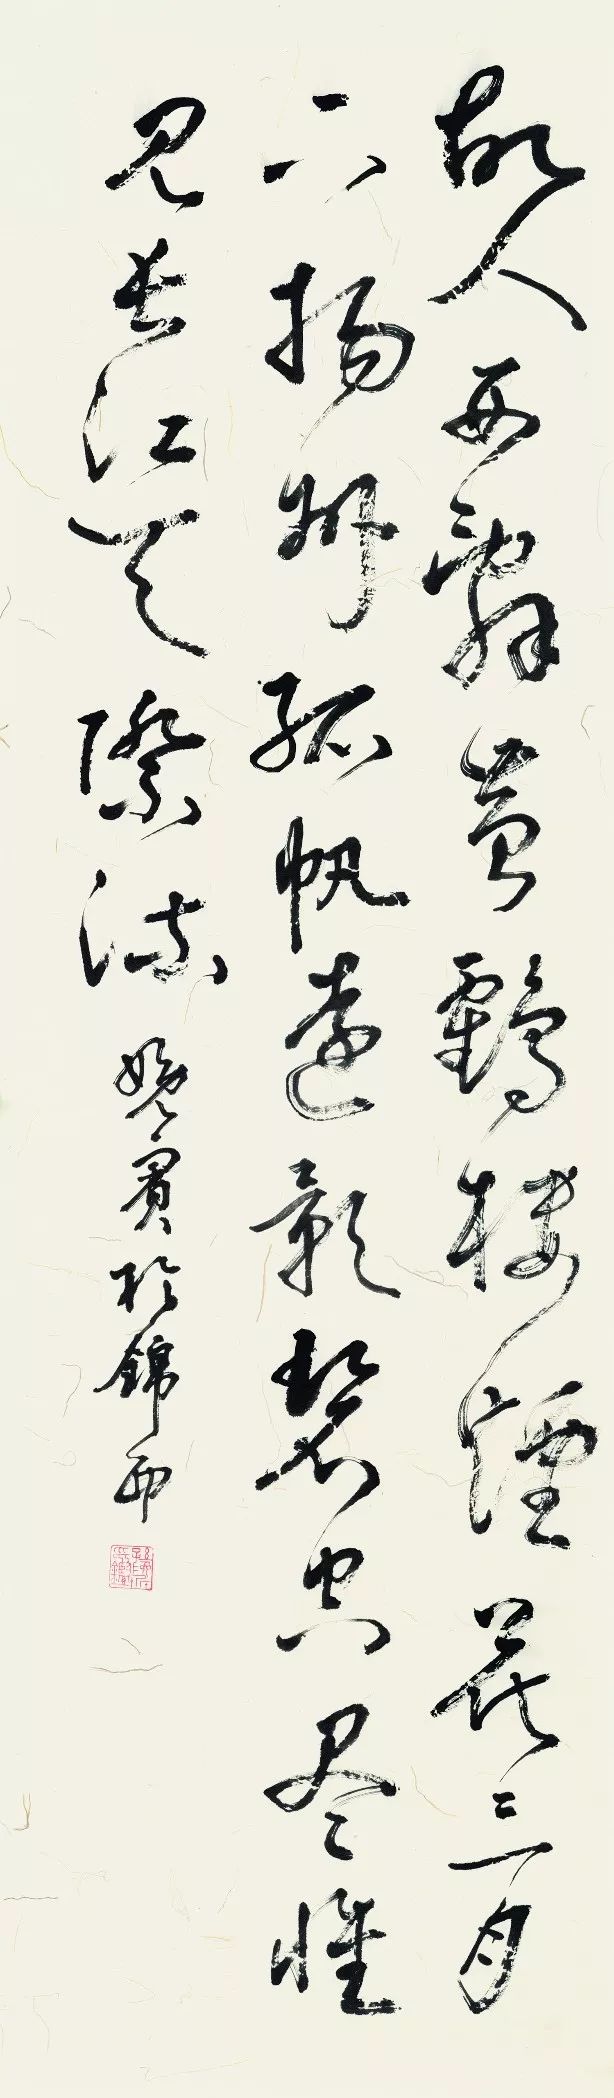 故人西辭黃鶴樓煙花三月
下揚州孤帆遠影碧空尽惟
見長江天際流
賓於錦西